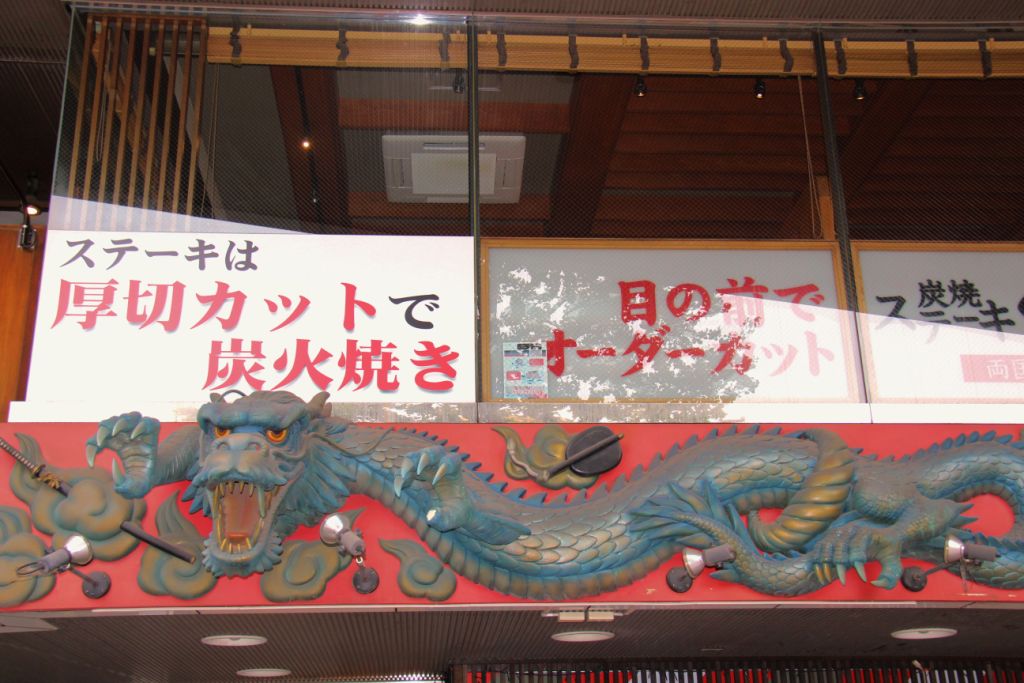 ステーキは
厚切カットで
炭火焼き
目の前で
オーダーカット
炭焼
ステーキ
両国